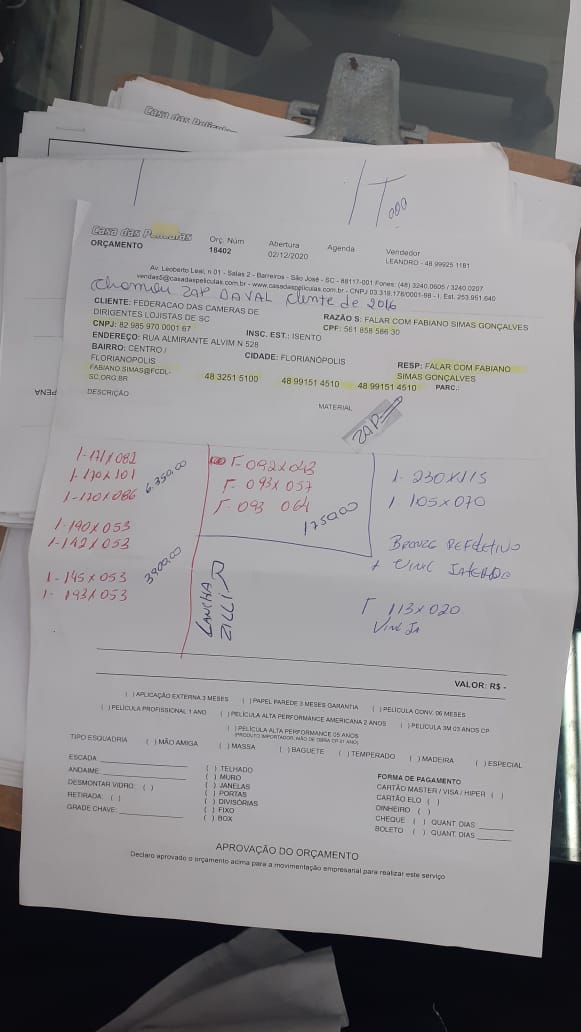 Casa das Películas
Casa das Películas
ORÇAMENTO
Orç. Núm
18402
Abertura
02/12/2020
Agenda
Vendedor
LEANDRO - 48 99925 1181
Av. Leoberto Leal, n.01 - Salas 2 - Barreiros - São José - SC - 88117-001 Fones: (48) 3240.0605 / 3240.0207
vendas5@casadaspeliculas.com.br - www.casadaspeliculas.com.br - CNPJ 03.319.178/0001-98 - I. Est. 253.951.640
chamou ZAP DAVAL cliente de 2016
CLIENTE: FEDERACAO DAS CAMERAS DE
DIRIGENTES LOJISTAS DE SC
RAZÃO S: FALAR COM FABIANO SIMAS GONÇALVES
CNPJ: 82 985 970 0001 67
INSC. EST.: ISENTO
CPF: 561 858 586 30
ENDEREÇO: RUA ALMIRANTE ALVIM N 528
BAIRRO: CENTRO /
FLORIANOPOLIS
CIDADE: FLORIANÓPOLIS
RESP: FALAR COM FABIANO
SIMAS GONÇALVES
FABIANO.SIMAS@FCDL-
SC.ORG.BR
48 3251 5100
48 99151 4510
48 99151 4510
PARC.:
DESCRIÇÃO
MATERIAL
ZAP
1-171X082
1-170X101
1-170X086
6.350,00
1-190X053
1-142X053
3900,00
1-145X053
1-193X053
1-092X043
1-093X057
1-093 064
1750,00
LANCHA
ZILLI
1-230X115
1 105X070
BRONZE REFLETIVO
+ VINIL JATEADO
1 113X020
VINIL JA
VALOR: R$ -
( ) APLICAÇÃO EXTERNA 3 MESES ( ) PAPEL PAREDE 3 MESES GARANTIA ( ) PELÍCULA CONV. 06 MESES
( ) PELÍCULA PROFISSIONAL 1 ANO ( ) PELÍCULA ALTA PERFORMANCE AMERICANA 2 ANOS ( ) PELÍCULA 3M 03 ANOS CP
( ) PELÍCULA ALTA PERFORMANCE 05 ANOS
(PRODUTO IMPORTADOR, MÃO DE OBRA CP 01 ANO)
TIPO ESQUADRIA ( ) MÃO AMIGA ( ) MASSA ( ) BAGUETE ( ) TEMPERADO ( ) MADEIRA ( ) ESPECIAL
ESCADA
ANDAIME
DESMONTAR VIDRO: ( )
RETIRADA: ( )
GRADE CHAVE:
( ) TELHADO
( ) MURO
( ) JANELAS
( ) PORTAS
( ) DIVISÓRIAS
( ) FIXO
( ) BOX
FORMA DE PAGAMENTO
CARTÃO MASTER / VISA / HIPER ( )
CARTÃO ELO ( )
DINHEIRO ( )
CHEQUE ( ) QUANT. DIAS
BOLETO ( ) QUANT. DIAS
APROVAÇÃO DO ORÇAMENTO
Declaro aprovado o orçamento acima para a movimentação empresarial para realizar este serviço